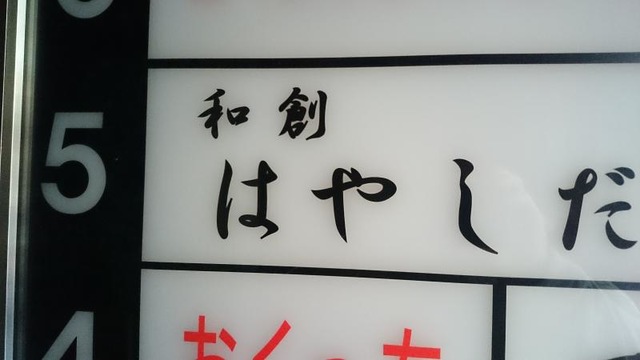 5
和創
はやしだ
4